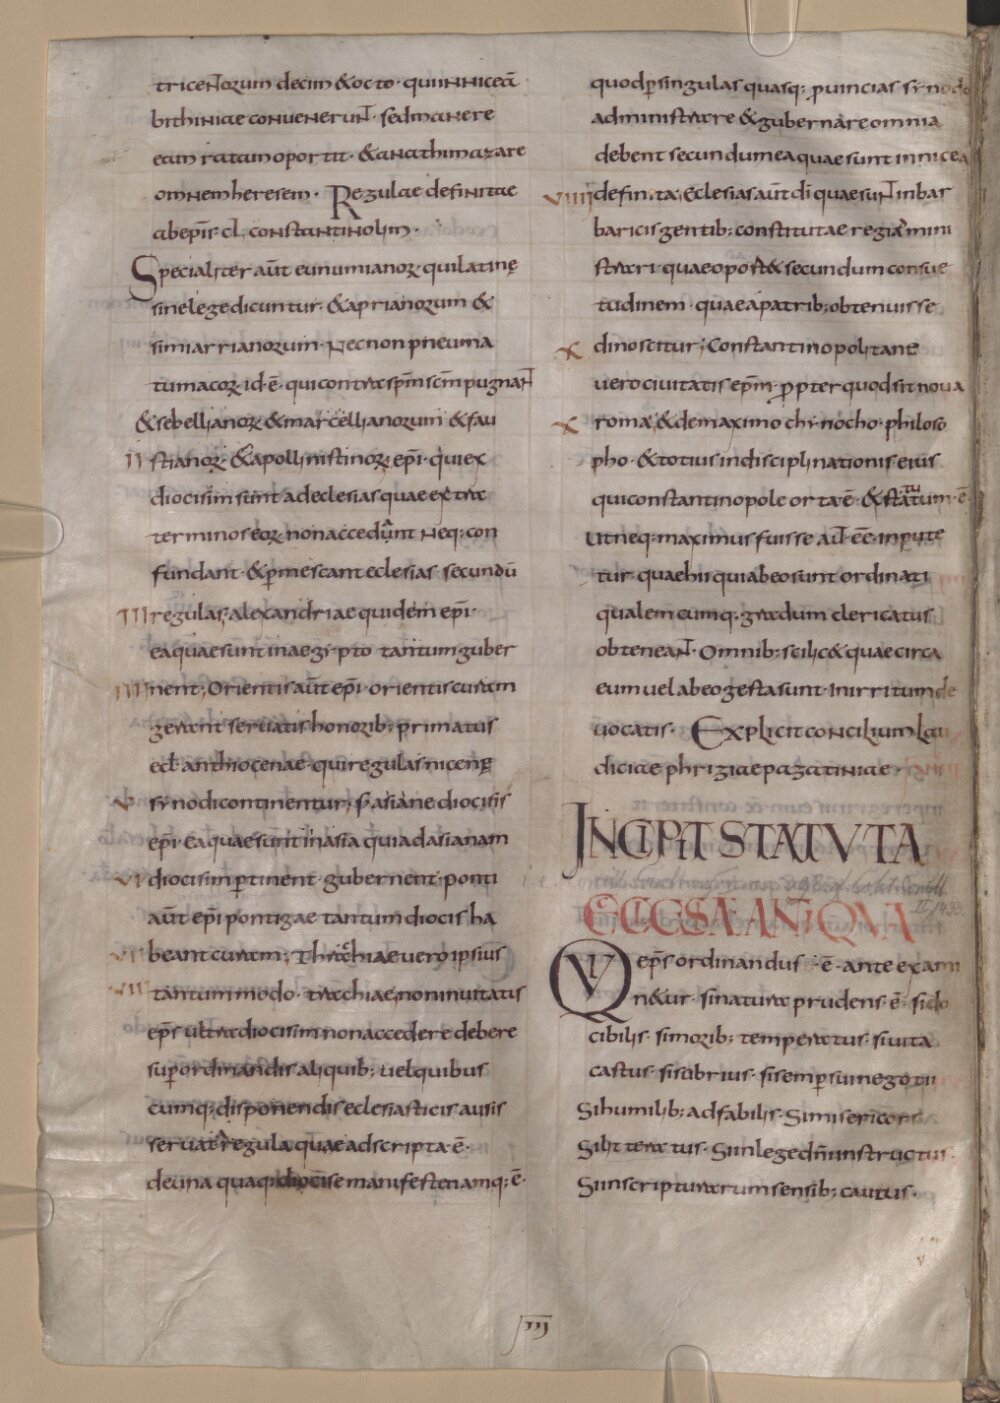 tricentorum decim & octo · quiinniceā
bithiniae conuenerunt · sedmanere
eam ratam oportit · & anathimazare
omnem heresem · Regulae definitae
abepīs · cl constantinolim ·
Specialiter aūt eunumianoꝝ quilatinę
sinelege dicuntur · & aprianorum &
simiarrianorum · Necnon pneuma
tumacoꝝ id · ē · qui contra spm̄ scm̄ pugnant
& sebellianoꝝ & marcellianorum & fau
II stianoꝝ · & apollinistinoꝝ epī · quiex
diocisim sunt ad eclesias quae extra
terminos eoꝝ non accedant Neq; con
fundant · & p̱mescant eclesias · secundū
III regulas, alexandriae quidem epī ·
ea quae sunt in aegi·pto tantum guber
IIII nent; Orientis aūt epī · orientis curam
gerant seruatis honorib; primatus
ecl̄ anthiocenae qui regulas nicenę
V synodi continentur; & asiane diocisis
epī · Ea quae sunt in asia qui ad asianam
VI diocisim p̱tinent · gubernent; ponti
aūt epī pontigae tantum diocis ha
VII beant curam; Thrachiae uero ipsius
VII tantummodo · trachiae; non inuitatis
epīs ultra diocisim non accedere debere
sup̱ ordinandis aliquib; uel quibus
cumq; disponendis eclesiasticis ausis
seruata regula quae adscripta · ē ·
de una quaq; diocise manifeste namq; · ē ·
quod p̱ singulas quasq; prouincias synodo
administrare & gubernare omnia
debent secundum ea quae sunt in nicea
VIIII definita, Eclesias aūt dī quae sunt in bar
baricis gentib; constitutae regi a mini
strari · quae oport& secundum consue
tudinem · quae a patrib; obtenuisse
X dinoscitur; Constantinopolitane
uero ciuitatis epm̄ · propter quod sit noua
X roma, & de maximo chynocho · philoso
pho · & totius indisciplinationis eius
qui constantinopole orta · ē · & statutum · ē ·
Ut neq; maximus fuisse aut · ee̅ · inpute
tur · quae hii qui ab eo sunt ordinati
qualemcumq; gradum clericatus
obteneant · Omnib; scilic& quae circa
eum uel ab eo gesta sunt · In irritum de
uocatis · Explicit concilium lau
diciae phrigiae pagatiniae ·
INCIPIT STATUTA
ECCLESIAE ANTIQUA
QVI eps̄ ordinandus · ē · ante exami
n&ur · si natura prudens · ē · si do
cibilis · si morib; temperatus · si uita
castus · si sobrius · si semp̱ sui negotii
Si humilib; adfabilis · Si misericors
Si litteratus · Si in lege dn̄i instructus ·
Si in scripturarum sensib; cautus ·
III